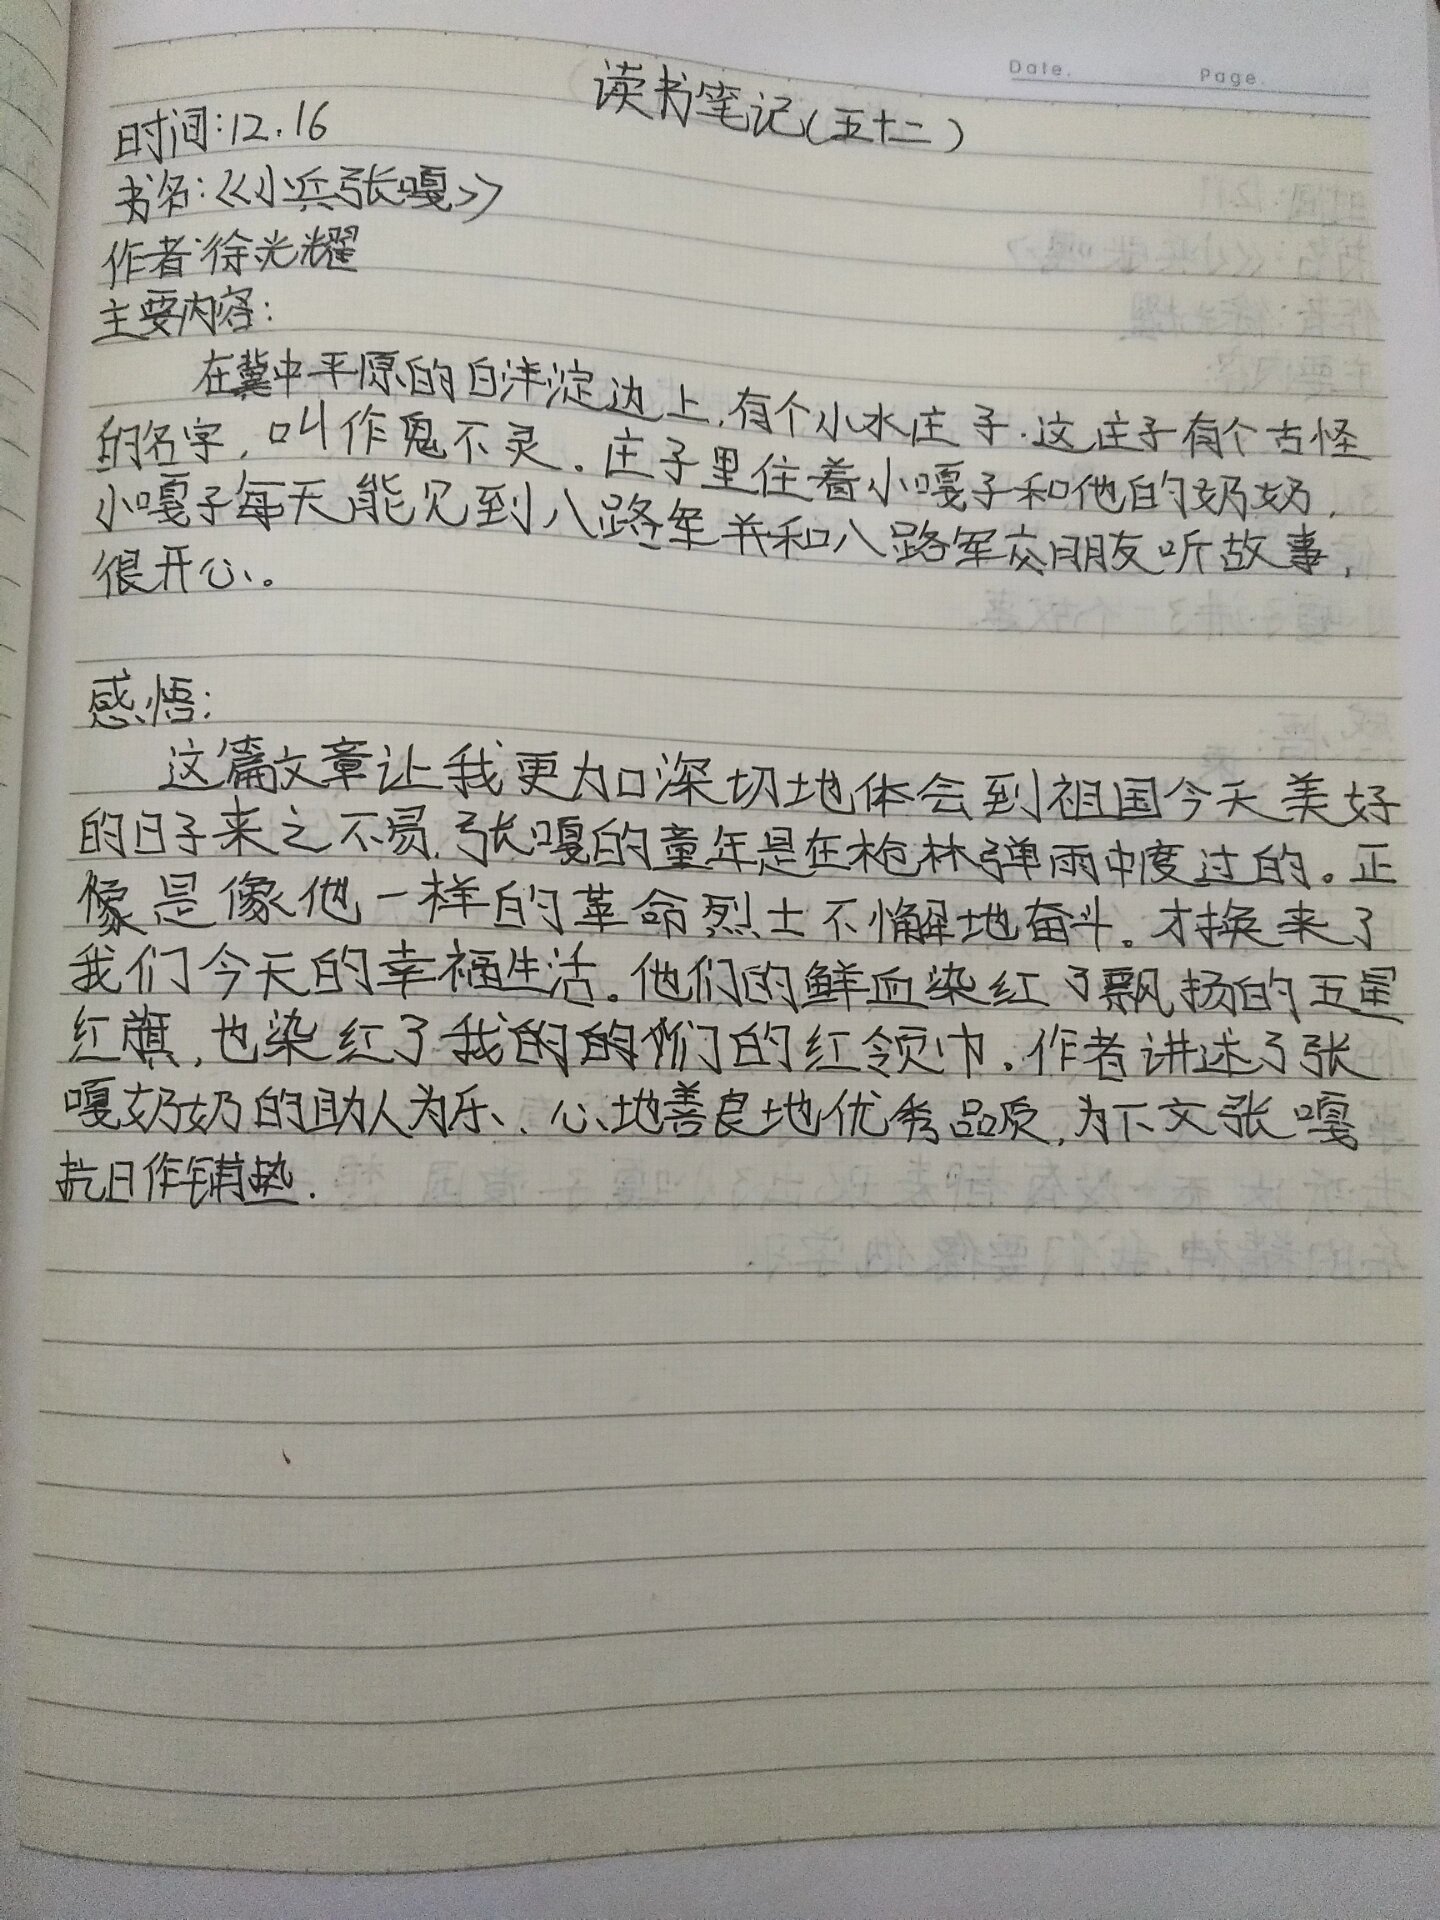 Date.
Page.
读书笔记(五十二)
时间:12.16
书名:《小兵张嘎》
作者:徐光耀
主要内容:
在冀中平原的白洋淀边上,有个小水庄子.这庄子有个古怪
的名字,叫作鬼不灵。庄子里住着小嘎子和他的奶奶,
小嘎子每天能见到八路军并和八路军交朋友听故事,
很开心。
感悟:
这篇文章让我更加深切地体会到祖国今天美好
的日子来之不易.张嘎的童年是在枪林弹雨中度过的。正
像是像他一样的革命烈士不懈地奋斗。才换来了
我们今天的幸福生活。他们的鲜血染红了飘扬的五星
红旗,也染红了我的的们的红领巾.作者讲述了张
嘎奶奶的助人为乐、心地善良地优秀品质,为下文张嘎
抗日作铺垫.